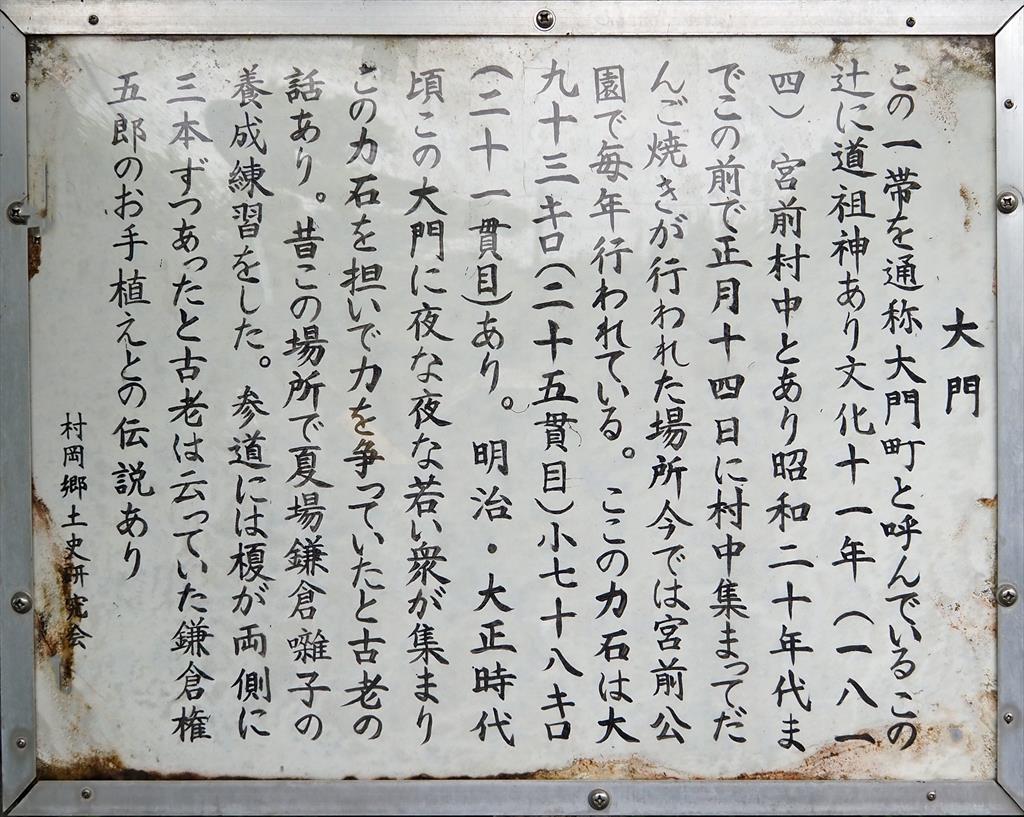 大門
この一帯を通称大門町と呼んでいるこの
辻に道祖神あり文化十一年（一八一
四）宮前村中とあり昭和二十年代ま
でこの前で正月十四日に村中集まってだ
んご焼きが行われた場所今では宮前公
園で毎年行われている。ここの力石は大
九十三キロ（二十五貫目）小七十八キロ
（二十一貫目）あり。明治・大正時代
頃この大門に夜な夜な若い衆が集まり
この力石を担いで力を争っていたと古老の
話あり。昔この場所で夏場鎌倉囃子の
養成練習をした。参道には榎が両側に
三本ずつあったと古老は云っていた鎌倉権
五郎のお手植えとの伝説あり
村岡郷土史研究会